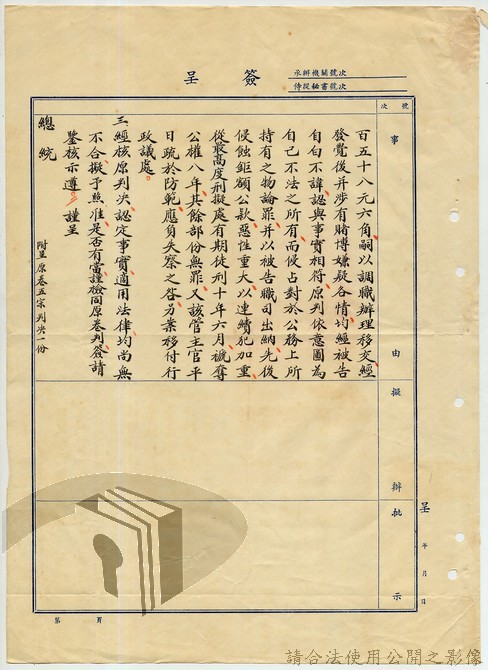 簽呈
承辦機關號次
侍從秘書號次
號次
事由
擬辦
批示
呈 年 月 日
百五十八元六角嗣以調職辦理移交經
發覺後并涉有賭博嫌疑各情均經被告
自白不諱認與事實相符原判依意圖為
自己不法之所有而侵占對於公務上所
持有之物論罪并以被告職司出納先後
侵蝕鉅額公款惡性重大以連續犯加重
從最高度刑擬處有期徒刑十年六月褫奪
公權八年其餘部份無罪又該管主官平
日疏於防範應負失察之咎另案移付行
政議處
三、經核原判決認定事實適用法律均尚無
不合擬予照准是否有當謹檢同原卷判簽請
鑒核示遵 謹呈
總統
附呈原卷五宗判決一份
第 頁
請合法使用公開之影像